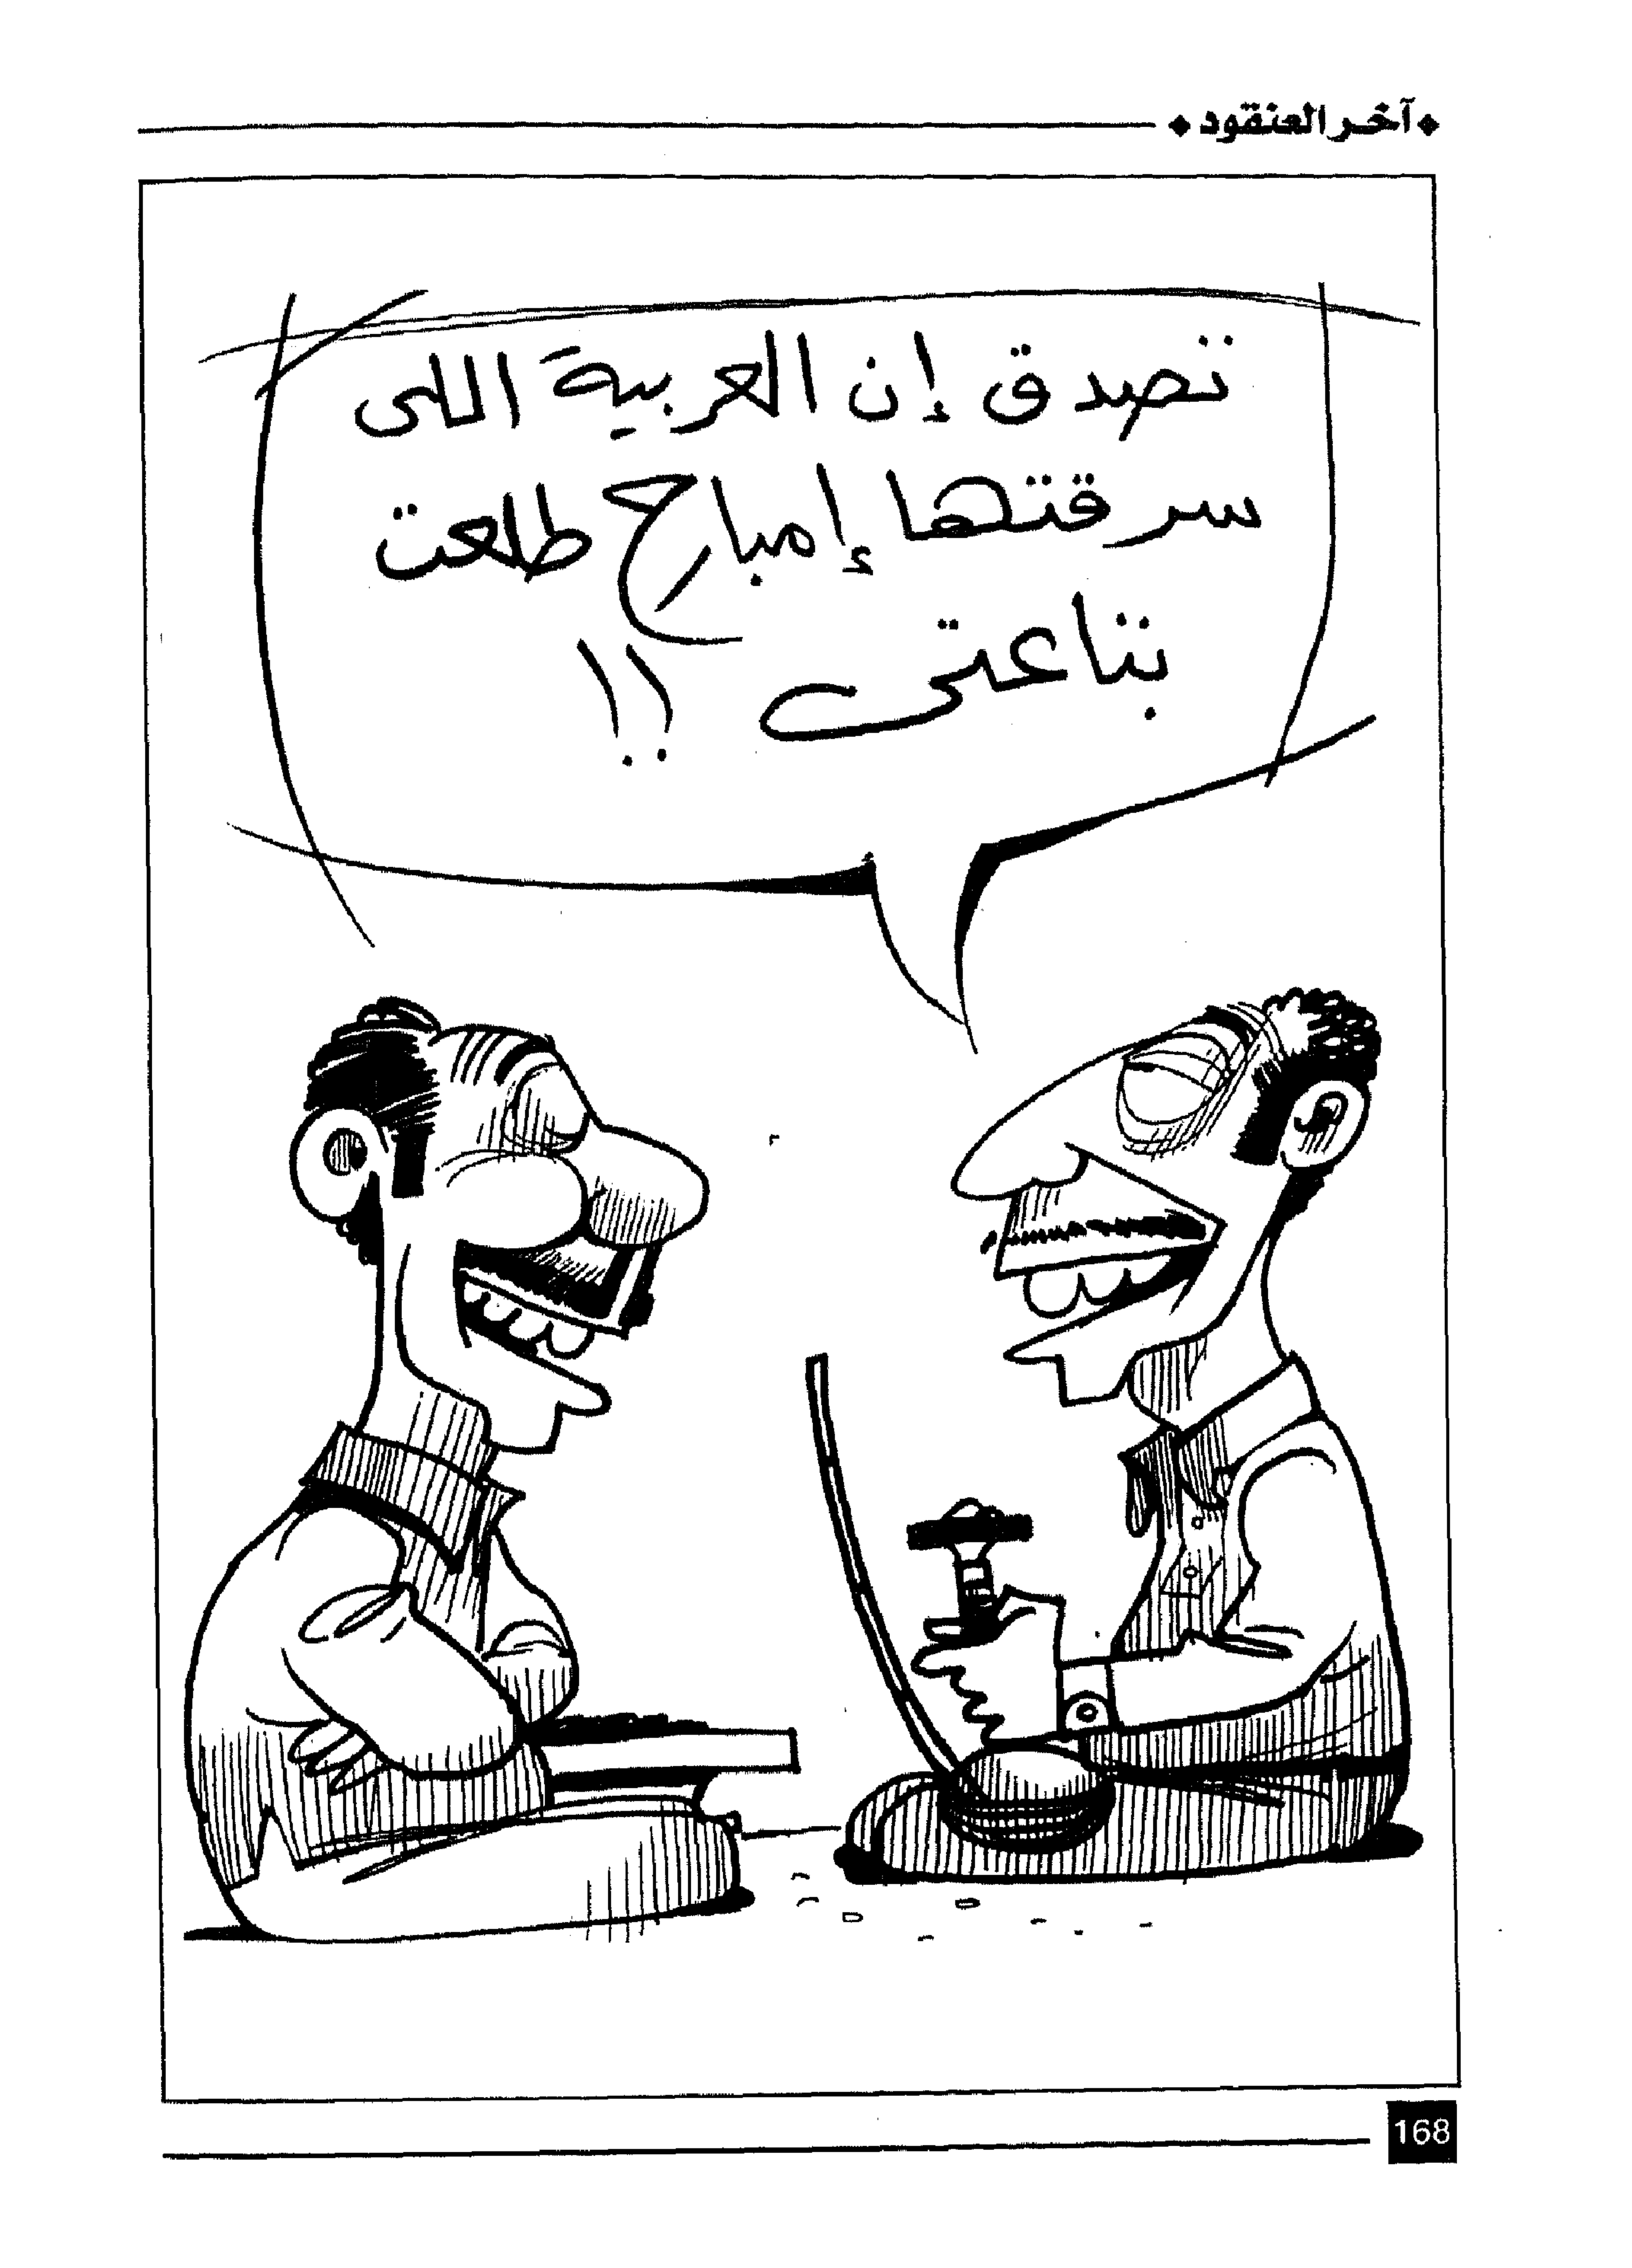 ❖ آخر العنقود ❖
تصدق إن العربية اللى
سرقتها إمبارح طلعت
بتاعتى !!
168